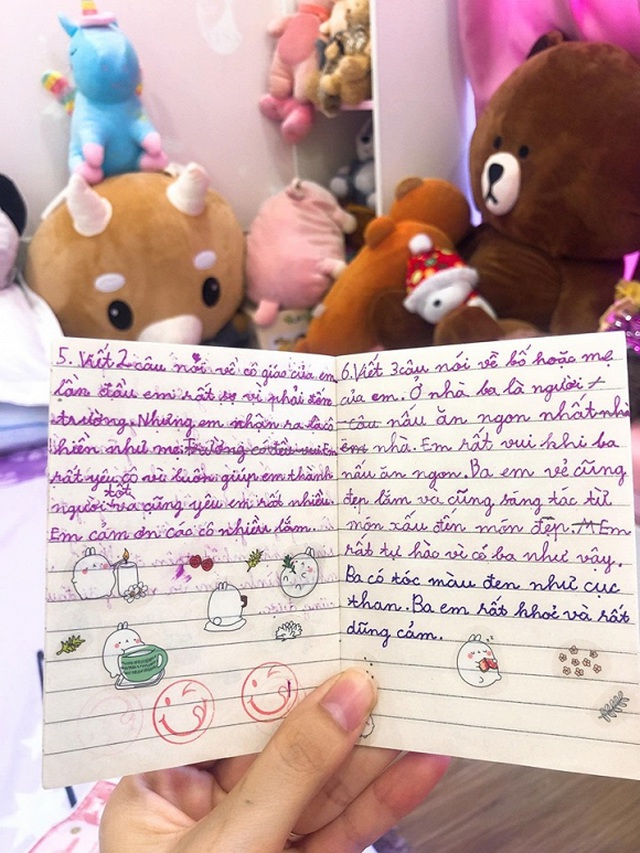 5. Viết 2 câu nói về cô giáo của em
lần đầu em rất sợ vì phải đến
trường. Nhưng em nhận ra là cô
hiền như mẹ. Trường có đều vui Em
rất yêu cô và luôn giúp em thành
người tốt và cũng yêu em rất nhiều.
Em cảm ơn các cô nhiều lắm.
6. Viết 3 câu nói về bố hoặc mẹ
của em. Ở nhà ba là người
câu nấu ăn ngon nhất nhà
em nhà. Em rất vui khi ba
nấu ăn ngon. Ba em vẻ cũng
đẹp lắm và cũng sáng tác từ
món xấu đến món đẹp. Em
rất tự hào vì có ba như vậy.
Ba có tóc màu đen như cục
than. Ba em rất khoẻ và rất
dũng cảm.